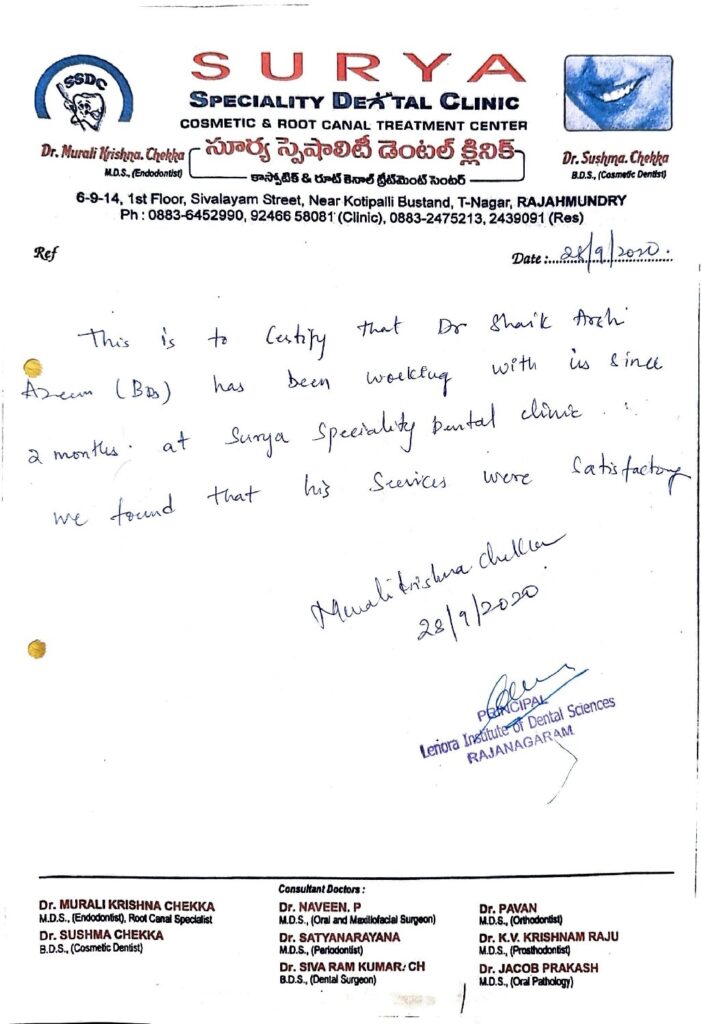 SSDC
SURYA
SPECIALITY DENTAL CLINIC
COSMETIC & ROOT CANAL TREATMENT CENTER
Dr. Murali Krishna. Chekka
M.D.S., (Endodontist)
సూర్య స్పెషాలిటీ డెంటల్ క్లినిక్
కాస్మోటిక్ & రూట్ కెనాల్ ట్రీట్‌మెంట్ సెంటర్
Dr. Sushma. Chekka
B.D.S., (Cosmetic Dentist)
6-9-14, 1st Floor, Sivalayam Street, Near Kotipalli Bustand, T-Nagar, RAJAHMUNDRY
Ph : 0883-6452990, 92466 58081 (Clinic), 0883-2475213, 2439091 (Res)
Ref
Date :...28/9/2020.
This is to Certify that Dr Shaik Arch
Azeem (BDS) has been working with us since
2 months. at Surya Speciality Dental clinic.
we found that his Services were Satisfactory
Murali Krishna Chekka
28/9/2020
PRINCIPAL
Lenora Institute of Dental Sciences
RAJANAGARAM
Consultant Doctors :
Dr. MURALI KRISHNA CHEKKA
M.D.S., (Endodontist), Root Canal Specialist
Dr. SUSHMA CHEKKA
B.D.S., (Cosmetic Dentist)
Dr. NAVEEN. P
M.D.S., (Oral and Maxillofacial Surgeon)
Dr. SATYANARAYANA
M.D.S., (Periodontist)
Dr. SIVA RAM KUMAR. CH
B.D.S., (Dental Surgeon)
Dr. PAVAN
M.D.S., (Orthodontist)
Dr. K.V. KRISHNAM RAJU
M.D.S., (Prosthodontist)
Dr. JACOB PRAKASH
M.D.S., (Oral Pathology)